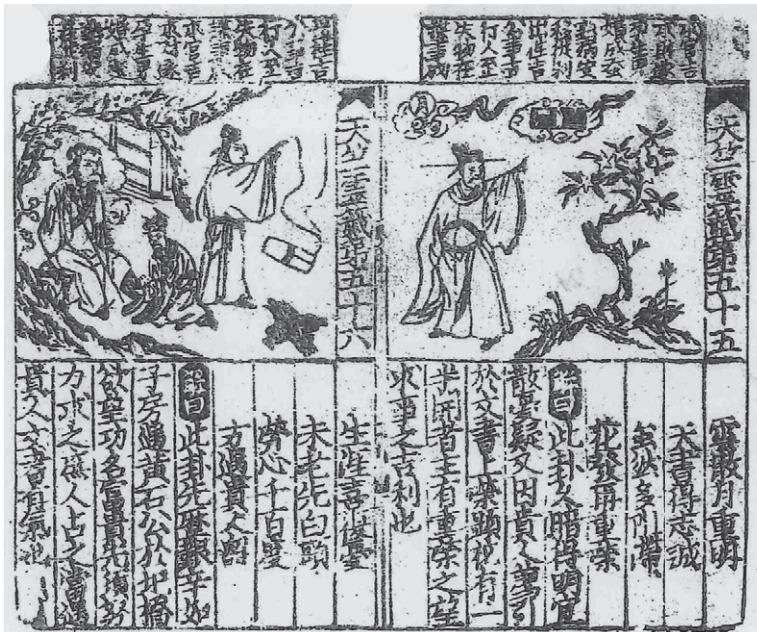 求官吉
求財遂
生男
婚成
病安
移徙利
出往吉
公事吉
行人至
失物在
謀事成
天竺靈籤第五十五
月
雲散月重明
天書得志誠
雖然多阻滯
花發再重榮
解曰此卦久暗得明宜
散憂疑又因貴人薦引
於文書上榮顯祝有一
半開者主有重榮之望
求事之吉利也
吉
公事吉
行人至
失物在
求官吉
求財遂
孕生男
婚成
利
天竺靈籤第五十六
生涯喜復憂
未老先白頭
勞心千百度
方遇貴人酬
解曰此卦先歷艱辛如
子房遇黃石公於圯橋
欲望功名富貴先須努
力求之應人占之當遇
貴人文書有氣也